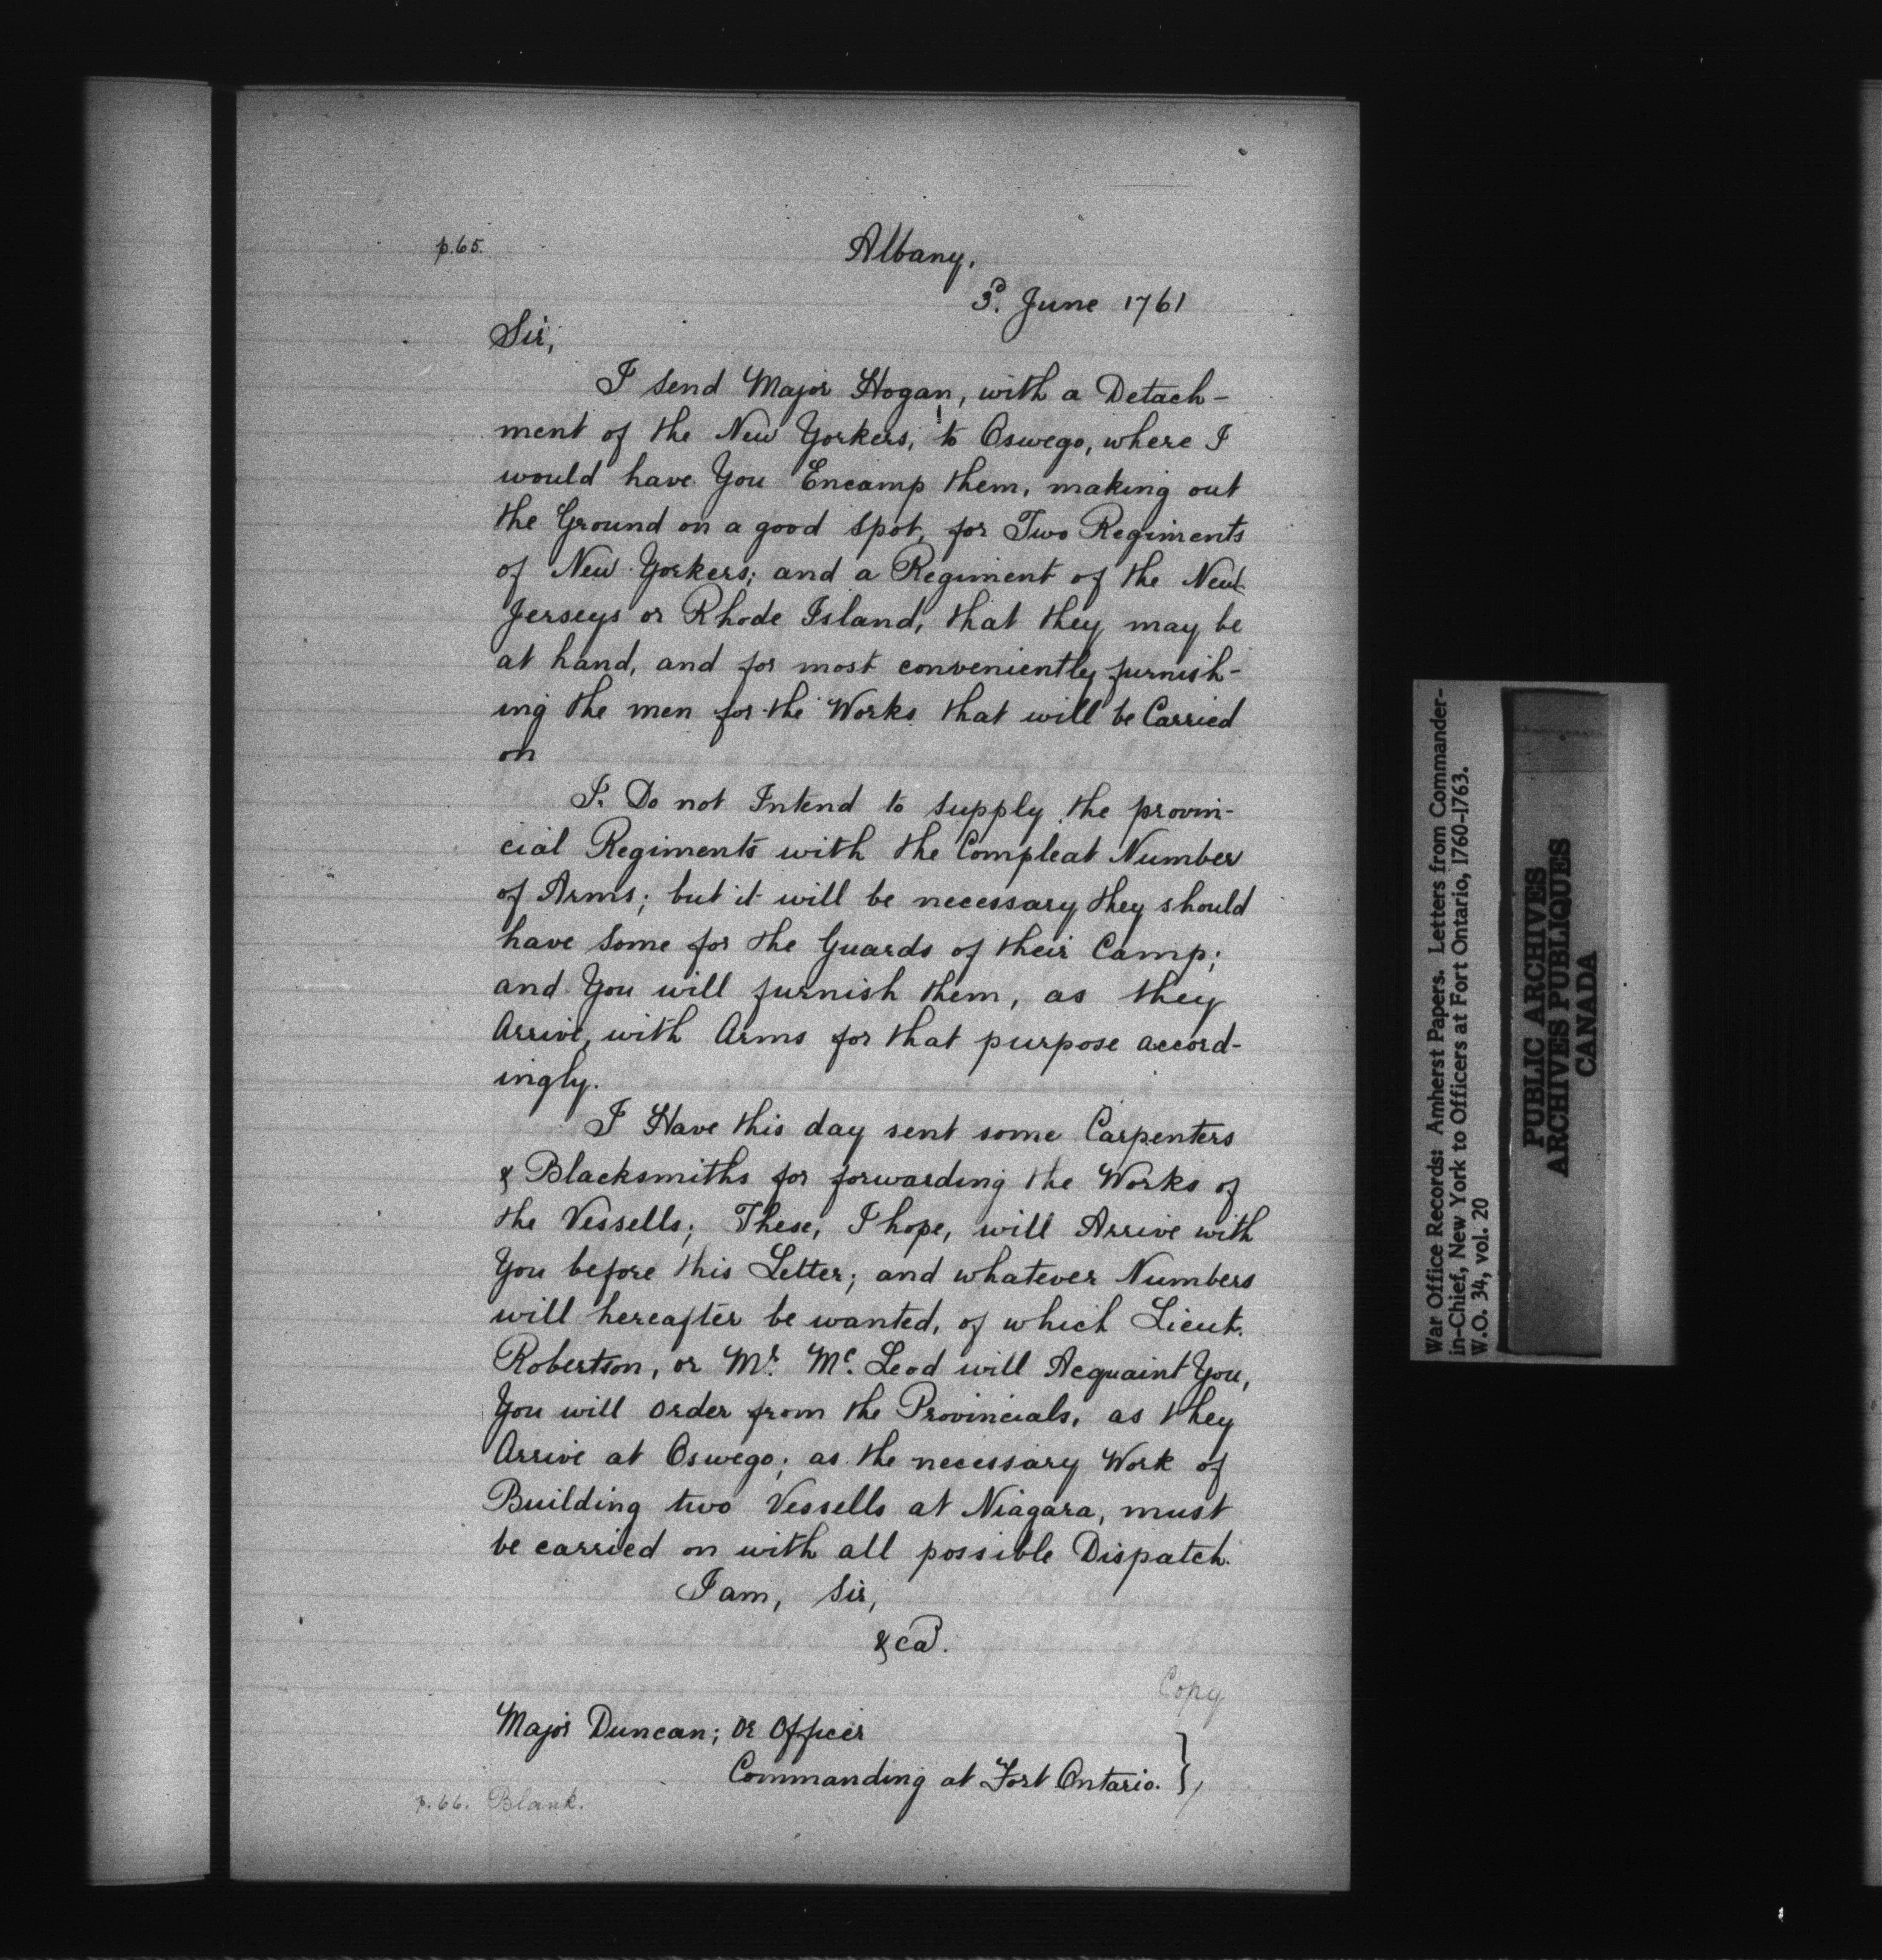 p.65.
Albany,
3d. June 1761
Sir,
I send Major Hogan, with a Detach-
ment of the New Yorkers, to Oswego, where I
would have You Encamp them, making out
the Ground on a good spot, for Two Regiments
of New Yorkers; and a Regiment of the New
Jerseys or Rhode Island, that they may be
at hand, and for most conveniently furnish-
ing the men for the Works that will be Carried
on
I. Do not Intend to supply the provin-
cial Regiments with the Compleat Number
of Arms; but it will be necessary they should
have some for the Guards of their Camp;
and You will furnish them, as they
Arrive, with Arms for that purpose accord-
ingly.
I Have this day sent some Carpenters
& Blacksmiths for forwarding the Works of
the Vessells; These, I hope, will Arrive with
You before this Letter; and whatever Numbers
will hereafter be wanted, of which Lieut.
Robertson, or Mr. Mc. Leod will Acquaint You,
You will order from the Provincials, as they
Arrive at Oswego; as the necessary Work of
Building two Vessells at Niagara, must
be carried on with all possible Dispatch.
I am, Sir,
&ca.
Copy
Major Duncan; or Officer
Commanding at Fort Ontario. }
p.66. Blank.
War Office Records: Amherst Papers. Letters from Commander-
in-Chief, New York to Officers at Fort Ontario, 1760-1763.
W.O. 34, vol. 20
PUBLIC ARCHIVES
ARCHIVES PUBLIQUES
CANADA